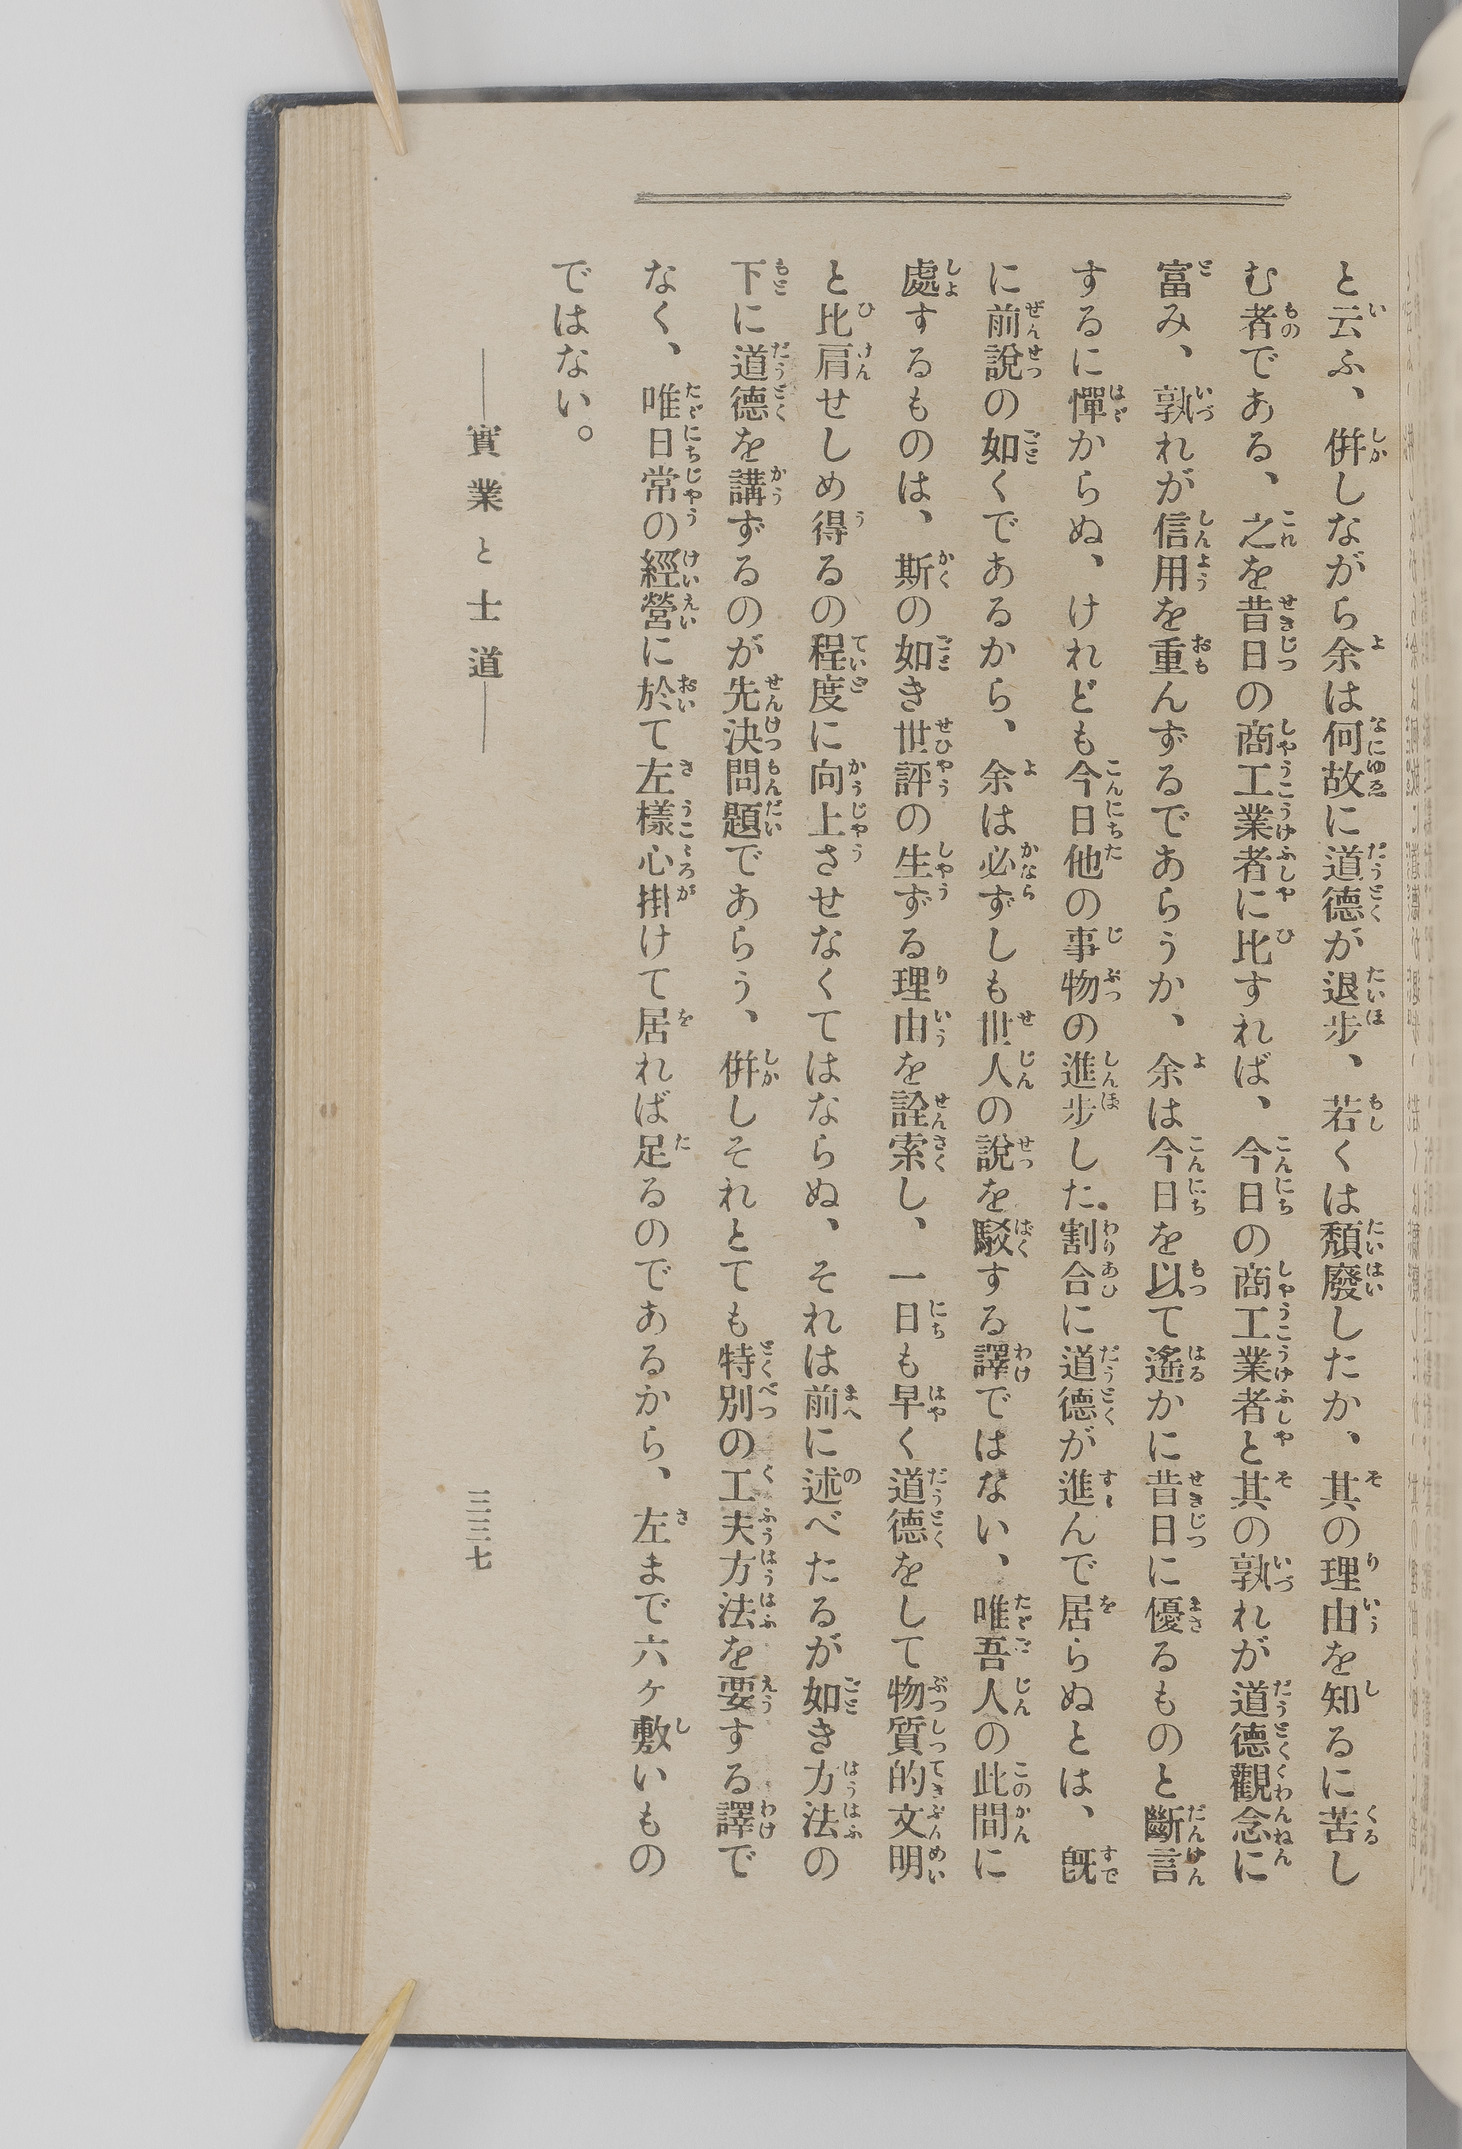 と云ふ、併しながら余は何故に道德が退步、若くは頽廢したか、其の理由を知るに苦し
む者である、之を昔日の商工業者に比すれば、今日の商工業者と其の孰れが道德觀念に
富み、孰れが信用を重んずるであらうか、余は今日を以て遙かに昔日に優るものと斷言
するに憚からぬ、けれども今日他の事物の進步した割合に道德が進んで居らぬとは、既
に前說の如くであるから、余は必ずしも世人の說を駁する譯ではない、唯吾人の此間に
處するものは、斯の如き世評の生ずる理由を詮索し、一日も早く道德をして物質的文明
と比肩せしめ得るの程度に向上させなくてはならぬ、それは前に述べたるが如き方法の
下に道德を講ずるのが先決問題であらう、併しそれとても特別の工夫方法を要する譯で
なく、唯日常の經營に於て左樣心掛けて居れば足るのであるから、左まで六ヶ敷いもの
ではない。
――實業と士道――
三三七